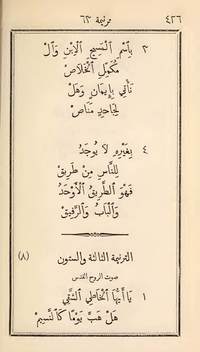 ٤٢٦ ترنيمة ٦٣
٣ بِاسْمِ ٱلْمَسِيحِ ٱلِٱبْنِ وَٱلْ
مُكَمِّلِ ٱلْخَلَاصْ
نَأْتِي بِإِيمَانٍ وَهَلْ
لِجَاحِدٍ مَنَاصْ
٤ بِغَيْرِهِ لَا يُوجَدُ
لِلنَّاسِ مِنْ طَرِيقْ
فَهْوَ ٱلطَّرِيقُ ٱلْأَوْحَدُ
وَٱلْبَابُ وَٱلرَّفِيقْ
الترنيمة الثالثة والستون (٨)
صوت الروح القدس
١ يَا أَيُّهَا ٱلْخَاطِي ٱلشَّقِي
هَلْ هَبَّ يَوْمًا كَٱلنَّسِيمْ